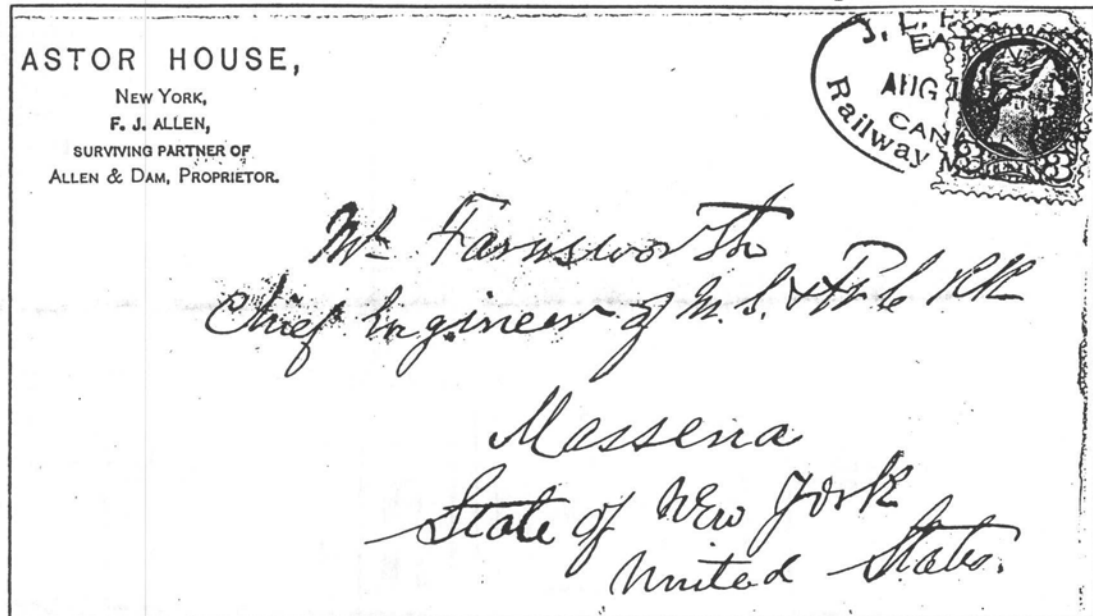 ASTOR HOUSE,
NEW YORK,
F. J. ALLEN,
SURVIVING PARTNER OF
ALLEN & DAM, PROPRIETOR.
AUG
CAN
Railway
3
Mr Farnsworth
Chief Engineer of M. S. & RR
Massena
State of New York
United States.